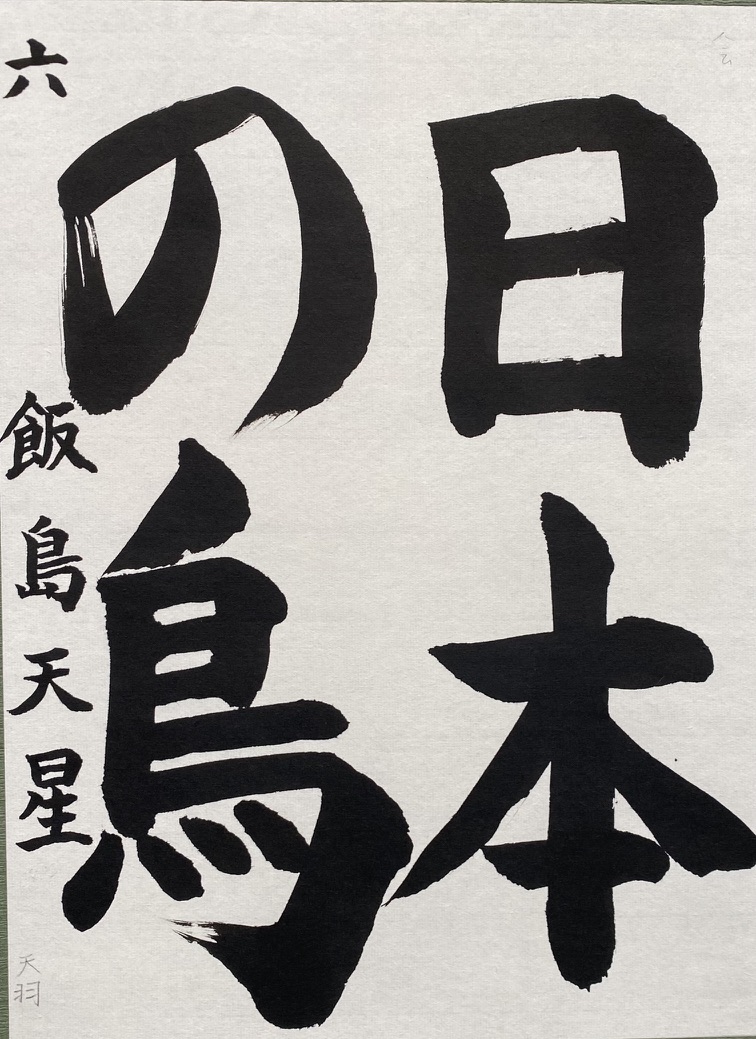 日本
の鳥
六 飯島天星
天羽